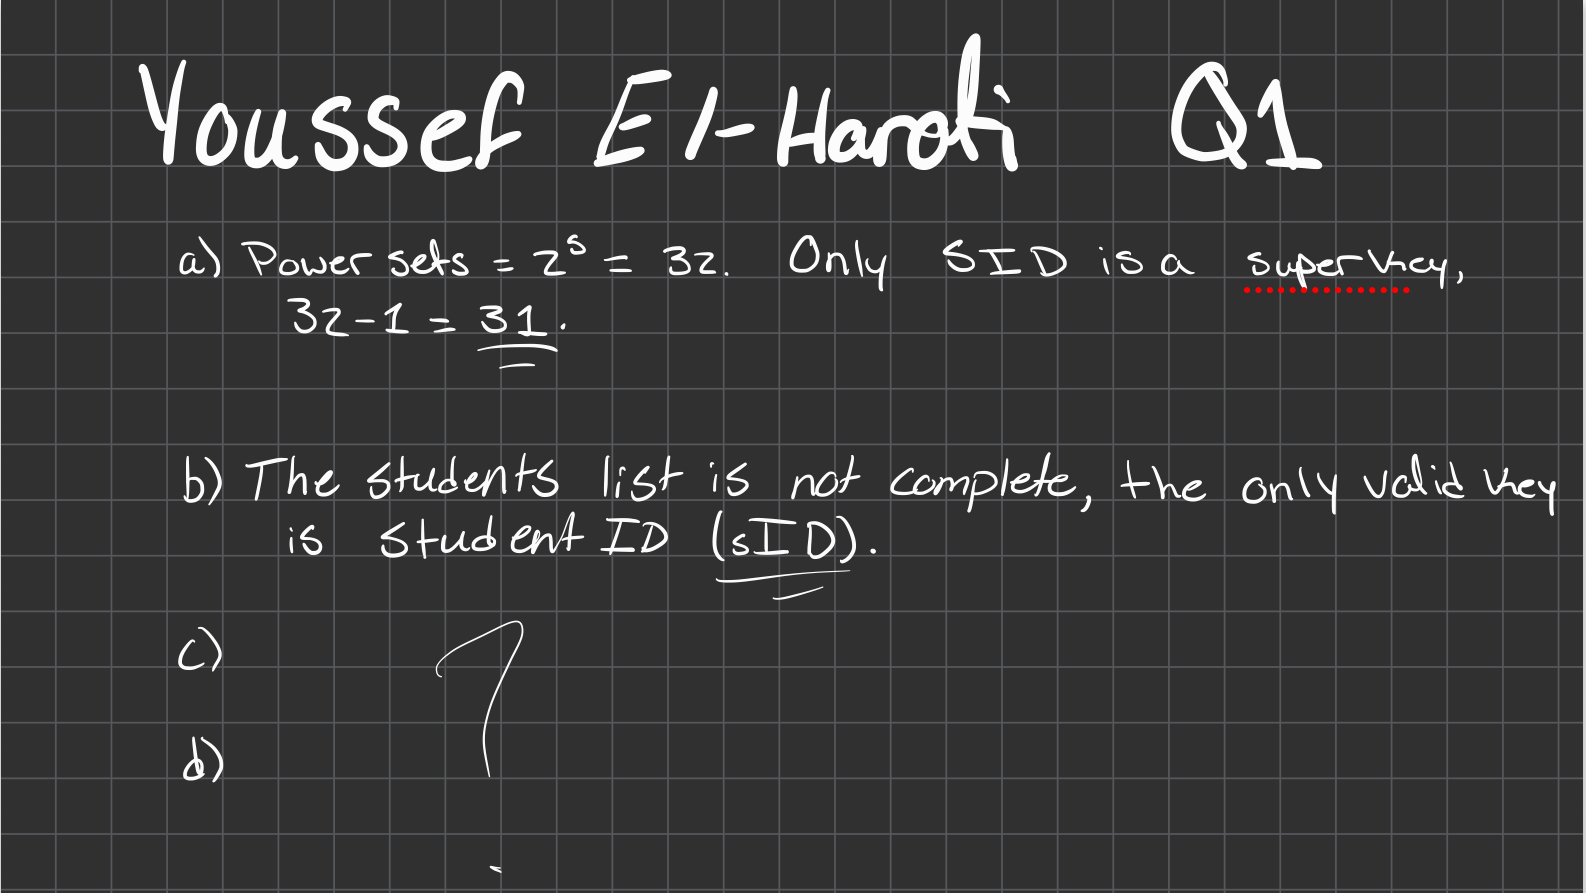 Youssef El-Harati Q1
a) Power sets = 2⁵ = 32. Only SID is a superkey,
32-1 = 31.
b) The students list is not complete, the only valid key
is student ID (sID).
c) ?
d)